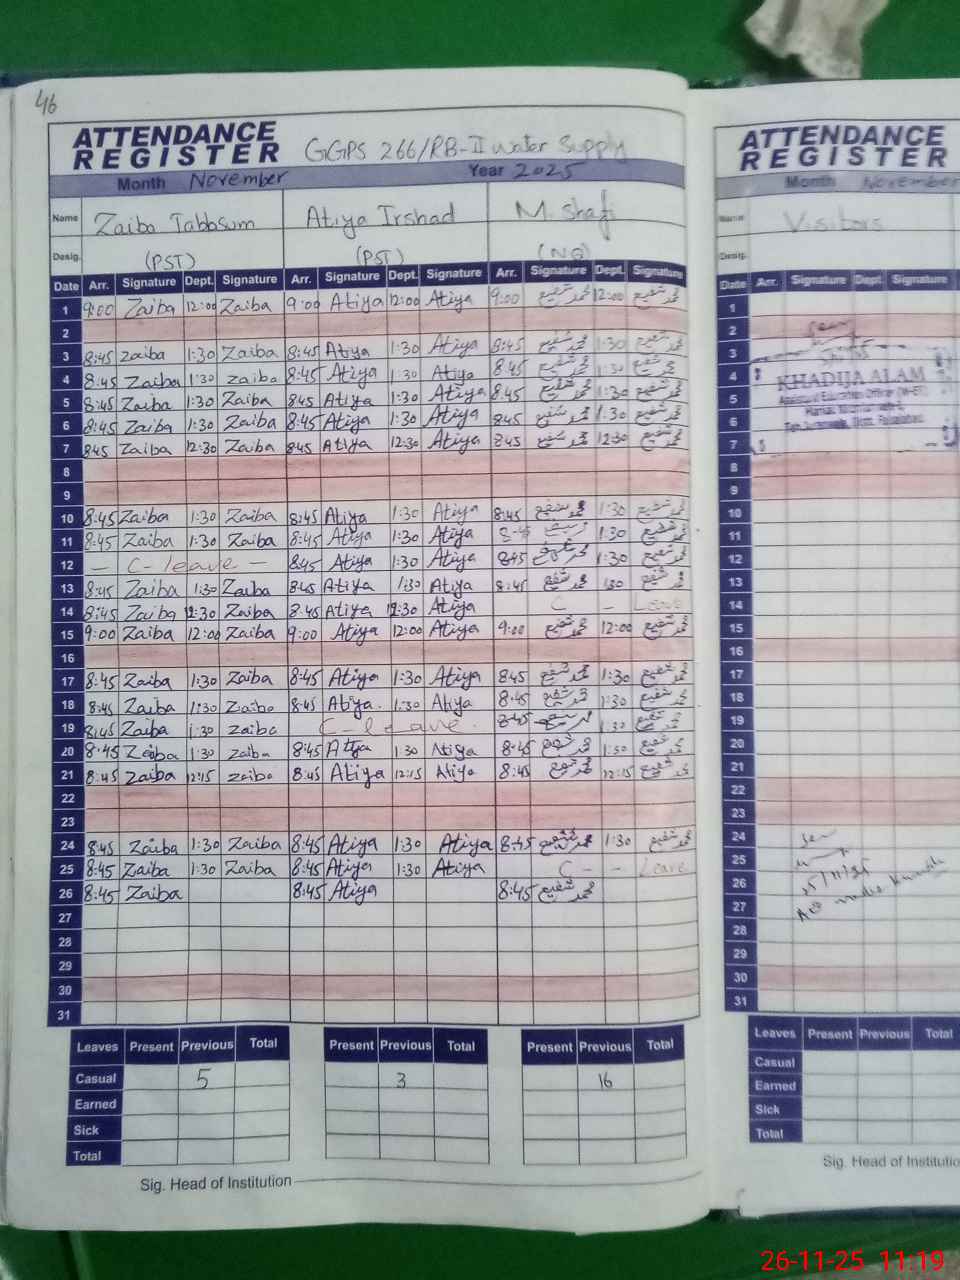 46
ATTENDANCE REGISTER GGPS 266/RB-II Water Supply
Month November Year 2025
Name Zaiba Tabbsum Atiya Irshad M. Shafi
Desig. (PST) (PST) (NQ)
Date Arr. Signature Dept. Signature Arr. Signature Dept. Signature Arr. Signature Dept. Signature
1 9:00 Zaiba 12:00 Zaiba 9:00 Atiya 12:00 Atiya 9:00 محمد شفیع 12:00 محمد شفیع
2
3 8:45 Zaiba 1:30 Zaiba 8:45 Atiya 1:30 Atiya 8:45 محمد شفیع 1:30 محمد شفیع
4 8:45 Zaiba 1:30 Zaiba 8:45 Atiya 1:30 Atiya 8:45 محمد شفیع 1:30 محمد شفیع
5 8:45 Zaiba 1:30 Zaiba 845 Atiya 1:30 Atiya 8:45 محمد شفیع 1:30 محمد شفیع
6 8:45 Zaiba 1:30 Zaiba 8:45 Atiya 1:30 Atiya 845 محمد شفیع 1:30 محمد شفیع
7 845 Zaiba 12:30 Zaiba 845 Atiya 12:30 Atiya 845 محمد شفیع 12:30 محمد شفیع
8
9
10 8:45 Zaiba 1:30 Zaiba 8:45 Atiya 1:30 Atiya 8:45 محمد شفیع 1:30 محمد شفیع
11 8:45 Zaiba 1:30 Zaiba 8:45 Atiya 1:30 Atiya 1:30 محمد شفیع
12 - C-leave - 8:45 Atiya 1:30 Atiya 845 محمد شفیع 1:30 محمد شفیع
13 8:45 Zaiba 1:30 Zaiba 845 Atiya 1:30 Atiya 8:45 محمد شفیع 1:30 محمد شفیع
14 8:45 Zaiba 12:30 Zaiba 8:45 Atiya 12:30 Atiya C - Leave
15 9:00 Zaiba 12:00 Zaiba 9:00 Atiya 12:00 Atiya 9:00 محمد شفیع 12:00 محمد شفیع
16
17 8:45 Zaiba 1:30 Zaiba 8:45 Atiya 1:30 Atiya 845 محمد شفیع 1:30 محمد شفیع
18 8:45 Zaiba 1:30 Zaiba 8:45 Atiya. 1:30 Atiya 8:45 محمد شفیع 1:30 محمد شفیع
19 8:45 Zaiba 1:30 zaiba C-leave. 8:45 1:30 محمد شفیع
20 8:45 Zaiba 1:30 zaiba 8:45 Atiya 1:30 Atiya 8:45 محمد شفیع 1:30 محمد شفیع
21 8:45 Zaiba 12:15 zaiba 8:45 Atiya 12:15 Atiya 8:45 محمد شفیع 12:15 محمد شفیع
22
23
24 8:45 Zaiba 1:30 Zaiba 8:45 Atiya 1:30 Atiya 8:45 محمد شفیع 1:30 محمد شفیع
25 8:45 Zaiba 1:30 Zaiba 8:45 Atiya 1:30 Atiya C - - Leave
26 8:45 Zaiba 8:45 Atiya 8:45 محمد شفیع
27
28
29
30
31
Leaves Present Previous Total Present Previous Total Present Previous Total
Casual 5 3 16
Earned
Sick
Total
Sig. Head of Institution
ATTENDANCE REGISTER
Month November
Name Visitors
Desig.
Date Arr. Signature Dept. Signature
1
2
3
4 KHADIJA ALAM
5 Assistant Education Officer
6
7
8
9
10
11
12
13
14
15
16
17
18
19
20
21
22
23
24
25
26 25/11/25
27 AEO
28
29
30
31
Leaves Present Previous Total
Casual
Earned
Sick
Total
Sig. Head of Institutio
26-11-25 11:19